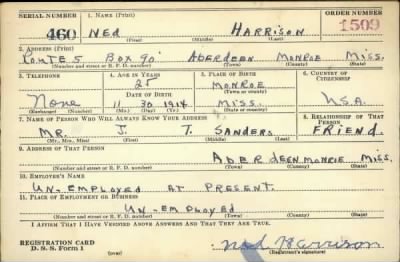 SERIAL NUMBER 1. NAME (Print) ORDER NUMBER
460 Ned Harrison 1509
(First) (Middle) (Last)
2. ADDRESS (Print)
Route 5 Box 90 Aberdeen Monroe Miss.
(Number and street or R. F. D. number) (Town) (County) (State)
3. TELEPHONE 4. AGE IN YEARS 5. PLACE OF BIRTH 6. COUNTRY OF CITIZENSHIP
25 Monroe
DATE OF BIRTH (Town or county)
None 11 30 1914 Miss. U.S.A.
(Exchange) (Number) (Mo.) (Day) (Yr.) (State or country)
7. NAME OF PERSON WHO WILL ALWAYS KNOW YOUR ADDRESS 8. RELATIONSHIP OF THAT PERSON
Mr. J. T. Sanders FRIEND
(Mr., Mrs., Miss) (First) (Middle) (Last)
9. ADDRESS OF THAT PERSON
Aberdeen Monroe Miss.
(Number and street or R. F. D. number) (Town) (County) (State)
10. EMPLOYER'S NAME
UN-employed at Present.
11. PLACE OF EMPLOYMENT OR BUSINESS
UN-employed
(Number and street or R. F. D. number) (Town) (County) (State)
I AFFIRM THAT I HAVE VERIFIED ABOVE ANSWERS AND THAT THEY ARE TRUE.
REGISTRATION CARD
D. S. S. Form 1 (over) Ned Harrison
(Registrant's signature)